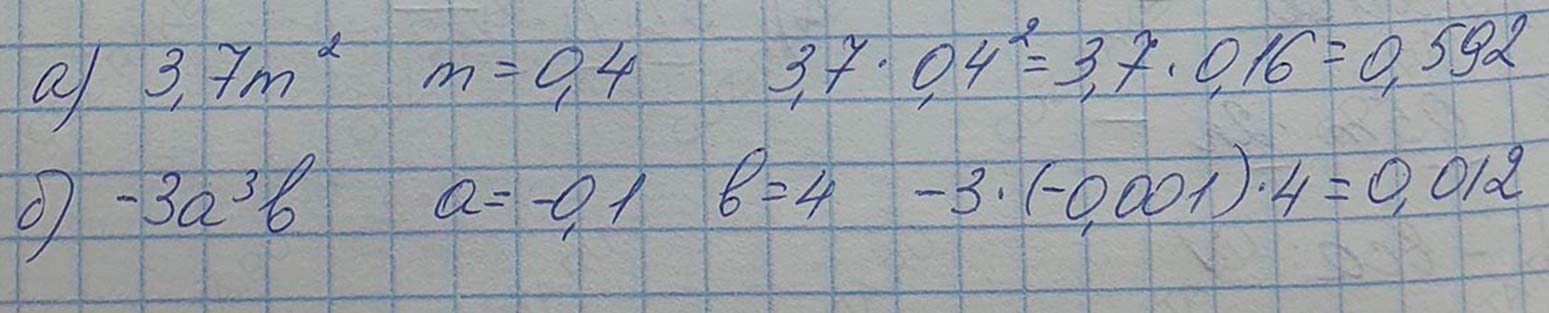 а) 3,7m² m = 0,4 3,7 · 0,4² = 3,7 · 0,16 = 0,592
б) -3a³b a = -0,1 b = 4 -3 · (-0,001) · 4 = 0,012